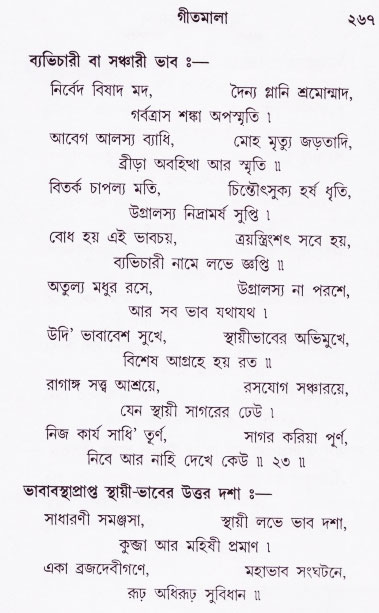 গীতমালা ২৬৭
ব্যভিচারী বা সঞ্চারী ভাব ঃ—
নির্বেদ বিষাদ মদ, দৈন্য গ্লানি শ্রমোন্মাদ,
গর্বত্রাস শঙ্কা অপস্মৃতি ।
আবেগ আলস্য ব্যাধি, মোহ মৃত্যু জড়তাদি,
ব্রীড়া অবহিত্থা আর স্মৃতি ॥
বিতর্ক চাপল্য মতি, চিন্তৌৎসুক্য হর্ষ ধৃতি,
উগ্রালস্য নিদ্রামর্ষ সুপ্তি ।
বোধ হয় এই ভাবচয়, ত্রয়স্ত্রিংশৎ সবে হয়,
ব্যভিচারী নামে লভে জ্ঞপ্তি ॥
অতুল্য মধুর রসে, উগ্রালস্য না পরশে,
আর সব ভাব যথাযথ ।
উদি’ ভাবাবেশ সুখে, স্থায়ীভাবের অভিমুখে,
বিশেষ আগ্রহে হয় রত ॥
রাগাঙ্গ সত্ত্ব আশ্রয়ে, রসযোগ সঞ্চারয়ে,
যেন স্থায়ী সাগরের ঢেউ ।
নিজ কার্য সাধি’ তূর্ণ, সাগর করিয়া পূর্ণ,
নিবে আর নাহি দেখে কেউ ॥ ২৩ ॥
ভাবাবস্থাপ্রাপ্ত স্থায়ী-ভাবের উত্তর দশা ঃ—
সাধারণী সমঞ্জসা, স্থায়ী লভে ভাব দশা,
কুব্জা আর মহিষী প্রমাণ ।
একা ব্রজদেবীগণে, মহাভাব সংঘটনে,
রূঢ় অধিরূঢ় সুবিধান ॥